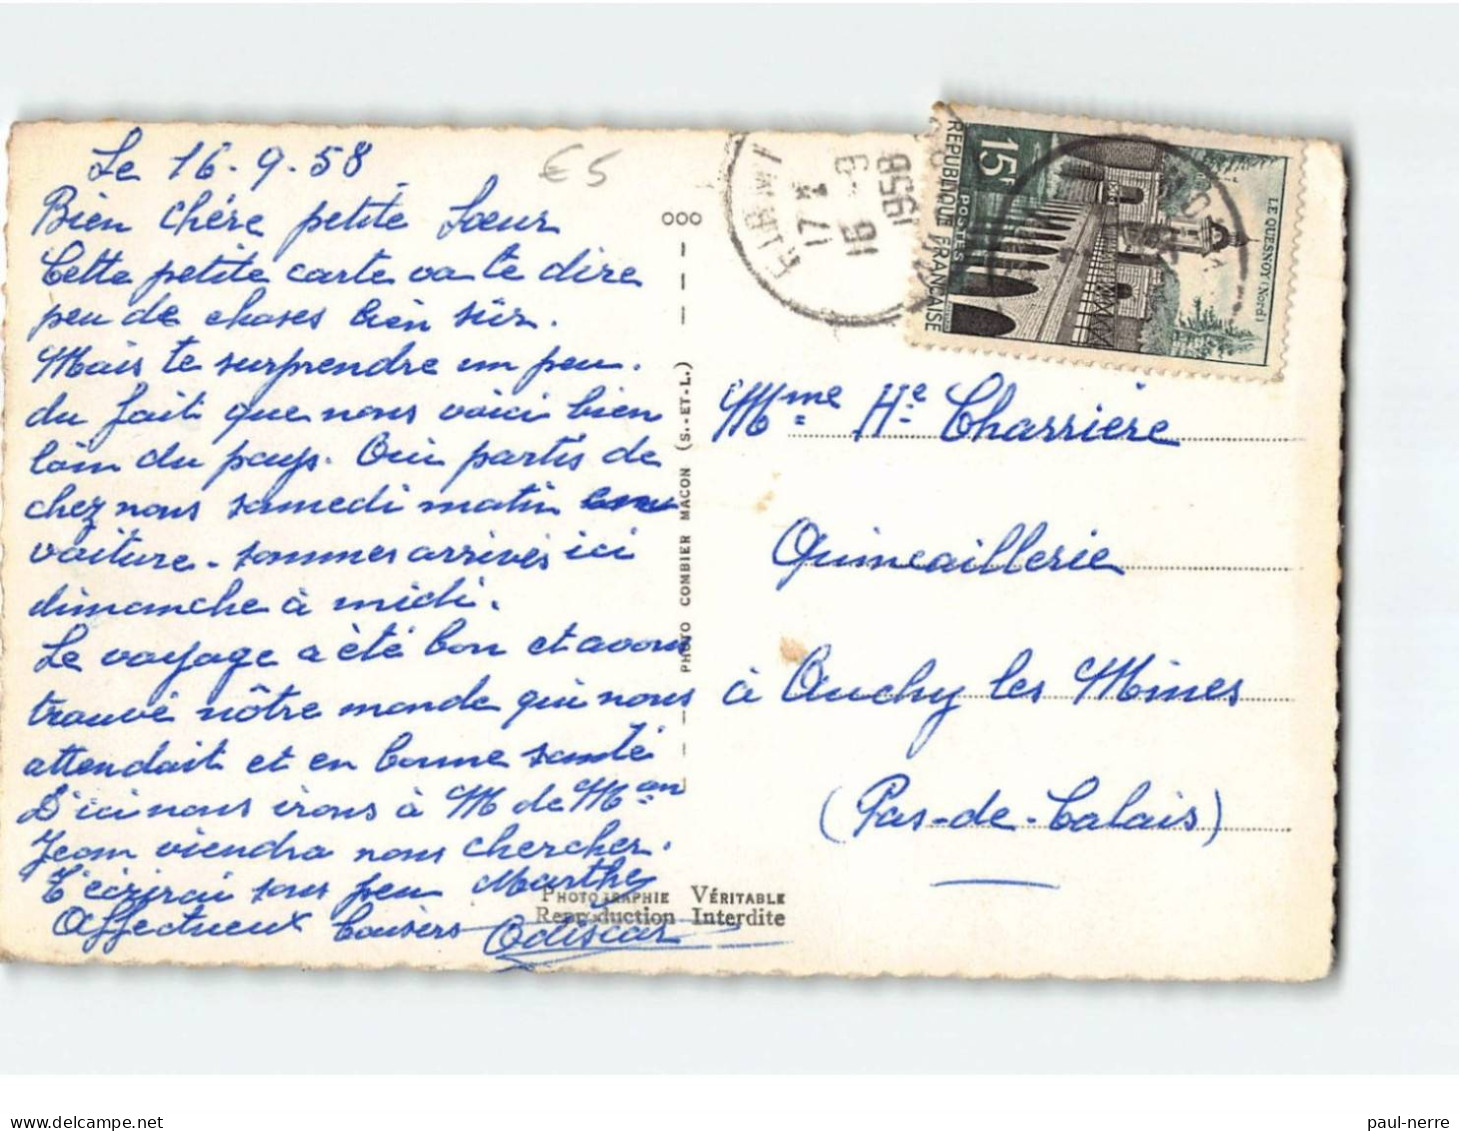 Le 16.9.58
€5
Bien chére petite Soeur
Cette petite carte va te dire
peu de choses bien sûr.
Mais te surprendre un peu.
du fait que nous voici bien
loin du pays. Oui partis de
chez nous samedi matin en
voiture - sommes arrivés ici
dimanche à midi.
Le voyage a été bon et avons
trouvé nôtre monde qui nous
attendait et en bonne santé
D'ici nous irons à M de M an
Jean viendra nous chercher.
T'écrirai sous peu Marthe
Affectueux baisers
ooo
PHOTO COMBIER MACON (S.-ET-L.)
PHOTOGRAPHIE VÉRITABLE
Reproduction Interdite
FIRMI
17 H
16 -9
1958
REPUBLIQUE FRANÇAISE
POSTES
15F
LE QUESNOY (Nord)
Mme He Charrière
Quincaillerie
à Auchy les Mines
(Pas-de-Calais)
paul-nerre